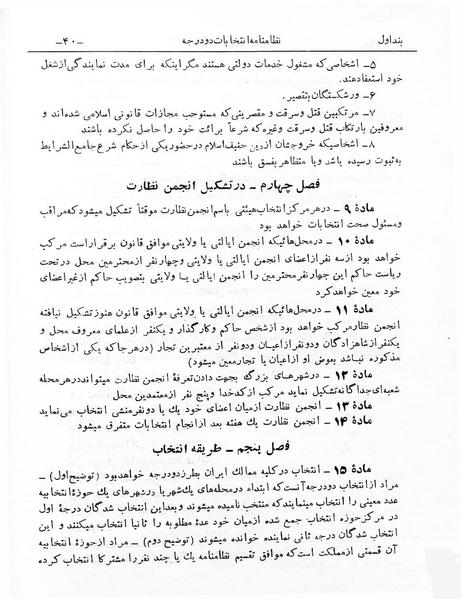 بند اول نظامنامه انتخابات دو درجه ـ۴۰ـ
۵ـ اشخاصی که مشغول خدمات دولتی هستند مگر اینکه برای مدت نمایندگی از شغل
خود استعفا دهند.
۶ـ ورشکستگان بتقصیر.
۷ـ مرتکبین قتل و سرقت و مقصرینی که مستوجب مجازات قانونی اسلامی شده‌اند و
معروفین بارتکاب قتل و سرقت وغیره که شرعاً برائت خود را حاصل نکرده باشند
۸ـ اشخاصیکه خروجشان از دین حنیف اسلام در حضور یکی از حکام شرع جامع الشرایط
به ثبوت رسیده باشد و یا متظاهر بفسق باشند
فصل چهارم ـ در تشکیل انجمن نظارت
مادهٔ ۹ ـ در هر مرکز انتخاب هیئتی باسم انجمن نظارت موقتاً تشکیل میشود که مراقب
ومسئول صحت انتخابات خواهد بود
مادهٔ ۱۰ ـ در محل‌هائیکه انجمن ایالتی یا ولایتی موافق قانون برقرار است مرکب
خواهد بود از سه نفر از اعضای انجمن ایالتی یا ولایتی وچهار نفر از محترمین محل در تحت
ریاست حاکم این چهار نفر محترمین را انجمن ایالتی یا ولایتی بتصویب حاکم از غیر اعضای
خود معین خواهد کرد
مادهٔ ۱۱ ـ در محل‌هائیکه انجمن ایالتی یا ولایتی موافق قانون هنوز تشکیل نیافته
انجمن نظار مرکب خواهد بود از شخص حاکم و کارگذار و یکنفر از علمای معروف محل و
یکنفر از شاهزادگان ودونفر از اعیان ودونفر از معتبرین تجار (در هر جا که یکی از اشخاص
مذکوره نباشد بعوض او از اعیان یا تجار معین میشود)
مادهٔ ۱۲ ـ در شهرهای بزرگ بجهت دادن تعرفهٔ انجمن نظارت میتواند در هر محله
شعبه‌ای جداگانه تشکیل نماید مرکب از کدخدا و پنج نفر از معتمدین محل
مادهٔ ۱۳ ـ انجمن نظارت از میان اعضای خود یك یا دو نفر منشی انتخاب می‌نماید
مادهٔ ۱۴ ـ انجمن نظارت یك هفته بعد از انجام انتخابات متفرق میشود
فصل پنجم ـ طریقه انتخاب
مادهٔ ۱۵ ـ انتخاب در کلیه ممالك ایران بطرز دو درجه خواهد بود (توضیح اول) ـ
مراد از انتخاب دو درجه آنست که ابتداء در محله‌های یك شهر یا در شهرهای یك حوزهٔ انتخابیه
عدد معینی را انتخاب مینمایند که منتخب نامیده میشوند و بعد این انتخاب شدگان درجهٔ اول
در مرکز حوزه انتخاب جمع شده از میان خود عدهٔ مطلوبه را ثانیا انتخاب میکنند و این
انتخاب شدگان درجه ثانی نماینده خوانده میشوند (توضیح دوم) ـ مراد از حوزهٔ انتخابیه
آن قسمتی از مملکت است که موافق تقسیم نظامنامه یك یا چند نفر را مشترکا انتخاب کرده